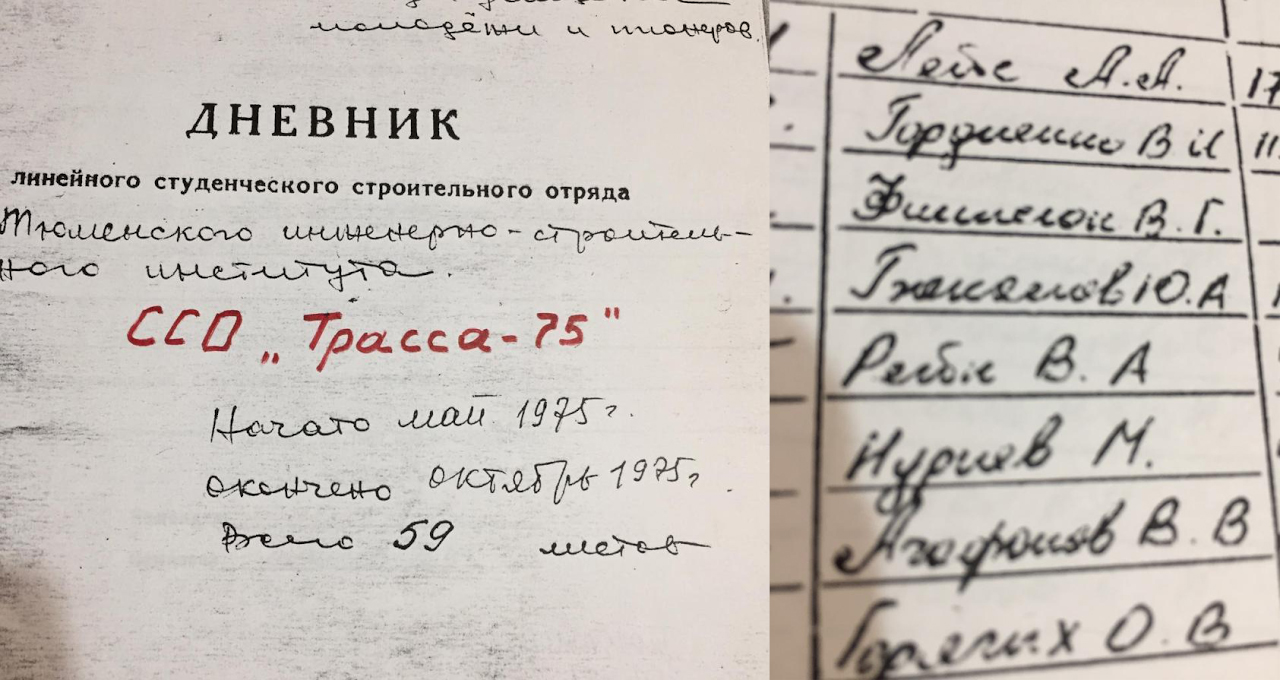 молодёжи и пионеров.
ДНЕВНИК
линейного студенческого строительного отряда
Тюменского инженерно-строитель-
ного института.
ССО „Трасса-75"
Начато май 1975г.
окончено октябрь 1975г.
Всего 59 листов
Лейс А.А. 17
Гордиенко В И 11.
Фишелон В.Г.
Ю.А
В. А
Нуриев М.
Агафонов В. В
Горячих О. В